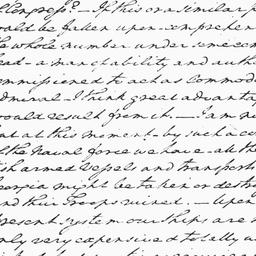 Congress? — If this or a similar p
ould be fallen upon — comprehen
the whole number under some com
head — a man of ability and auth
ommissioned to act as Commodo
admiral — I think great advanta
would result from it. — I am no
but at this moment — by such a co
the Naval force we have — all the
ish armed Vessels and transport
Georgia might be taken or destro
and their Troops ruined. — Upon
present system our Ships are n
nly very expensive & totally us